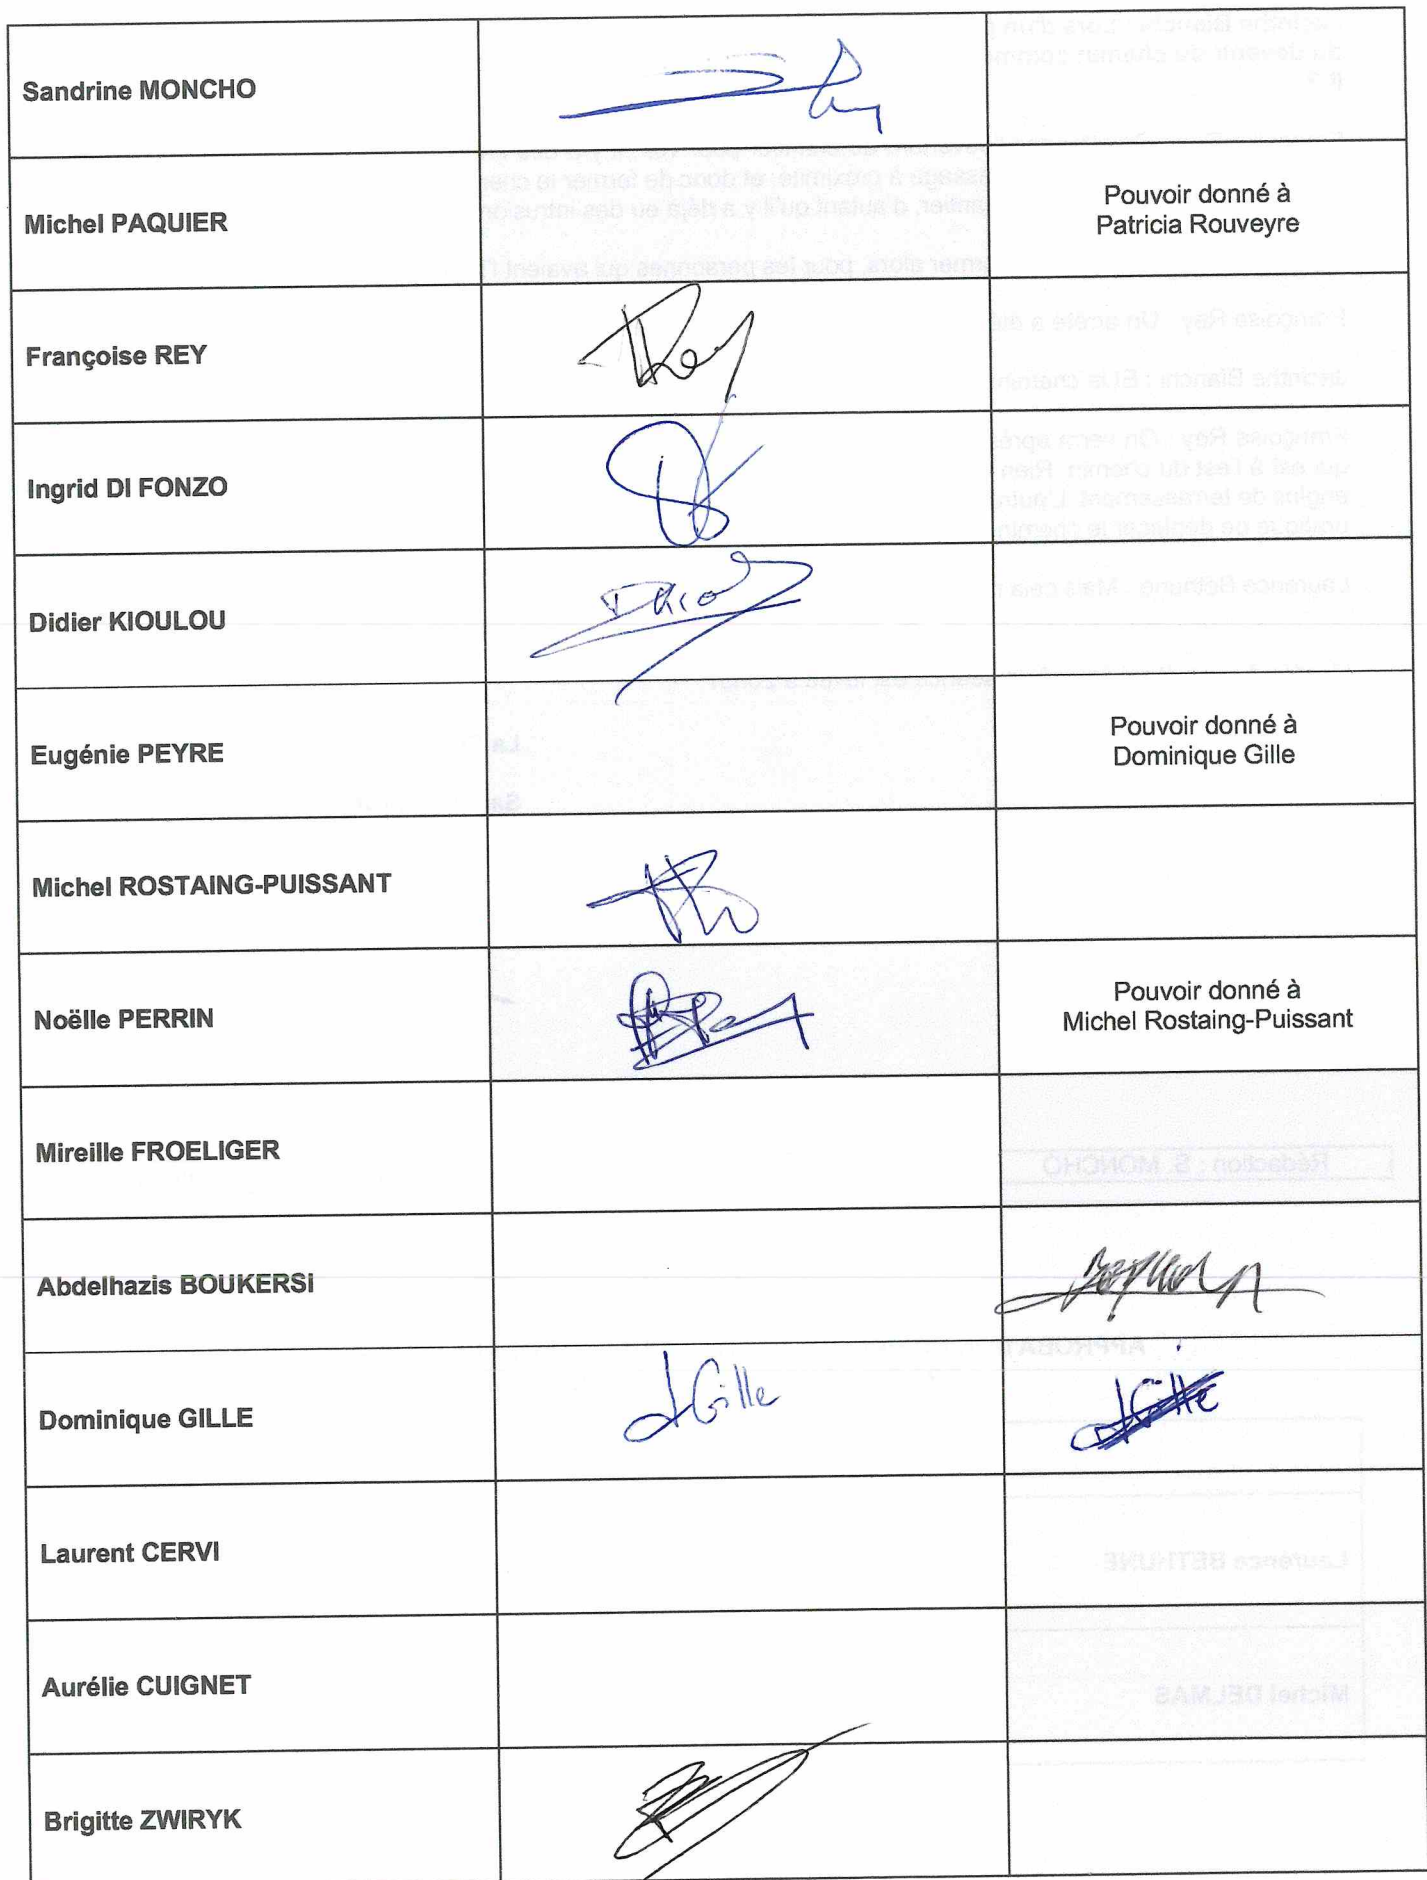 Sandrine MONCHO
Michel PAQUIER
Pouvoir donné à
Patricia Rouveyre
Françoise REY
Rey
Ingrid DI FONZO
Didier KIOULOU
Eugénie PEYRE
Pouvoir donné à
Dominique Gille
Michel ROSTAING-PUISSANT
Noëlle PERRIN
Pouvoir donné à
Michel Rostaing-Puissant
Mireille FROELIGER
Rédaction : S. MONCHO
Abdelhazis BOUKERSI
Dominique GILLE
dGille
dGille
Laurent CERVI
Laurence BETHUNE
Aurélie CUIGNET
Michel DELMAS
Brigitte ZWIRYK